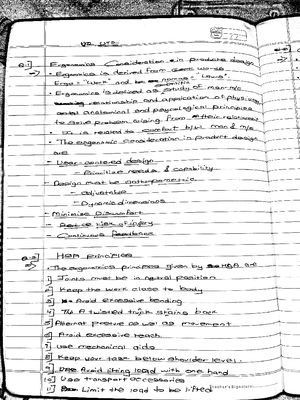 Q.1] Ergonomics Consideration in products design
→ • Ergonomics is derived from Greek words
Ergo - "Work" and "nomos" - "Laws".
• Ergonomics is defined as scientific study of man-m/c
relationship and application of physiological
anatomical and psycological principles
to solve problem arising from their
• It is related to comfort b/w man & m/c
• The ergonomic consideration in product design
are
- User-centered design
- Prioritize needs & capability
- Design must be anthropometric
- adjustable
- Dynamic dimensions
- Minimise Discomfort
- Reduce risk of injury
- Continuous Feedbence
Q.2] HSA principles
→ • The ergonomics principles given by HSA are
1] Joints must be in netral position
2] Keep the work close to body
3] Avoid excessive bending
4] A twisted trunk stains back
5] Alternat posture as well as movement
6] Avoid excessive reach
7] Use mechanical aids
8] Keep your task below shoulder level.
9] Avoid lifting load with one hand
10] Use transport accessories
11] Limit the load to be lifted
Teacher's Signature